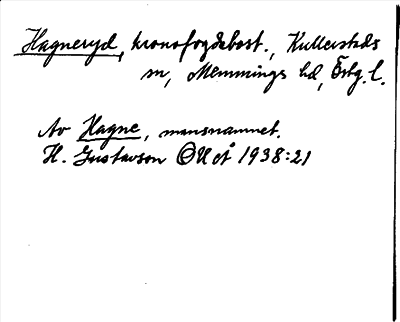 Hagneryd, kronofogdebost., Kullerstads
sn, Memmings hd, Östg. l.
Av Hagne, mansnamnet.
H. Gustavson OUÅ 1938:21